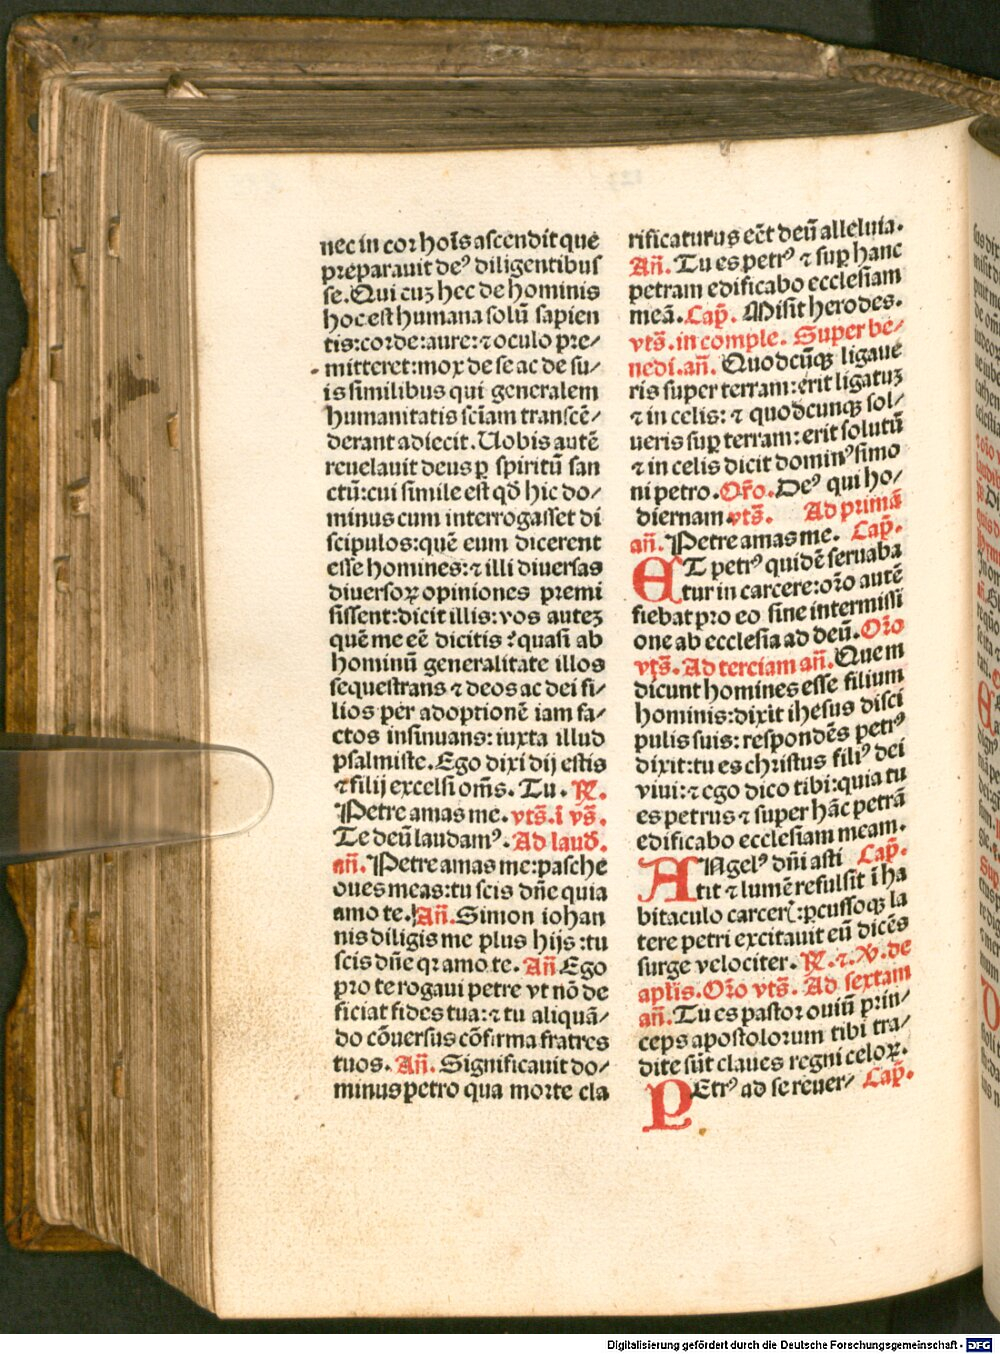 nec in cor hoīs ascendit que
preparauit deꝰ diligentibus
se. Qui cuꝫ hec de hominis
hoc est humana solū sapien
tis: corde: aure: ⁊ oculo pre⸗
mitteret: mox de se ac de su⸗
is similibus qui generalem
humanitatis sc̄iam transcē⸗
derant adiecit. Uobis autē
reuelauit deus ꝑ spiritū san
ctū: cui simile est qd̄ hic do⸗
minus cum interrogasset di
scipulos: quē eum dicerent
esse homines: ⁊ illi diuersas
diuersoꝝ opiniones premi
sissent: dicit illis: vos auteꝫ
quē me eē dicitis? quasi ab
hominū generalitate illos
sequestrans ⁊ deos ac dei fi⸗
lios per adoptionē iam fa⸗
ctos insinuans: iuxta illud
psalmiste. Ego dixi dij estis
⁊ filij excelsi oēs. Tu. ℟.
Petre amas me. vts̄. ī v̄s.
Te deū laudamꝰ. Ad laud̄.
añ. Petre amas me: pasche
oues meas: tu scis dn̄e quia
amo te. Añ. Simon iohan
nis diligis me plus hijs: tu
scis dn̄e qꝛ amo te. Añ Ego
pro te rogaui petre vt nō de
ficiat fides tua: ⁊ tu aliquā⸗
do cōuersus cōfirma fratres
tuos. Añ. Significauit do⸗
minus petro qua morte cla
rificaturus eēt deū alleluia.
Añ. Tu es petrꝰ ⁊ suꝑ hanc
petram edificabo ecclesiam
meā. Cap̄. Misit herodes.
vts̄. in comple. Super be⸗
nedi. añ. Quodcūqꝫ ligaue
ris super terram: erit ligatuꝫ
⁊ in celis: ⁊ quodcunqꝫ sol⸗
ueris suꝑ terram: erit solutū
⁊ in celis dicit dominꝰ simo
ni petro. Or̄o. Deꝰ qui ho⸗
diernam. vts̄. Ad primā
añ. Petre amas me. Cap̄.
ET petrꝰ quidē seruaba
tur in carcere: or̄o autē
fiebat pro eo sine intermissi
one ab ecclesia ad deū. Or̄o
vts̄. Ad terciam añ. Quem
dicunt homines esse filium
hominis: dixit ihesus disci
pulis suis: respondēs petrꝰ
dixit: tu es christus filiꝰ dei
viui: ⁊ ego dico tibi: quia tu
es petrus ⁊ super hāc petrā
edificabo ecclesiam meam.
ANgelꝰ dn̄i asti Cap̄.
tit ⁊ lumē refulsit ī ha
bitaculo carceꝝ: ꝑcussoqꝫ la
tere petri excitauit eū dicēs
surge velociter. ℟. ⁊. ℣. de
aplīs. Or̄o vts̄. Ad sextam
añ. Tu es pastor ouiū prin⸗
ceps apostolorum tibi tra⸗
dite sūt claues regni celoꝝ.
PEtrꝰ ad se reuer⸗ Cap̄.
Digitalisierung gefördert durch die Deutsche Forschungsgemeinschaft - DFG